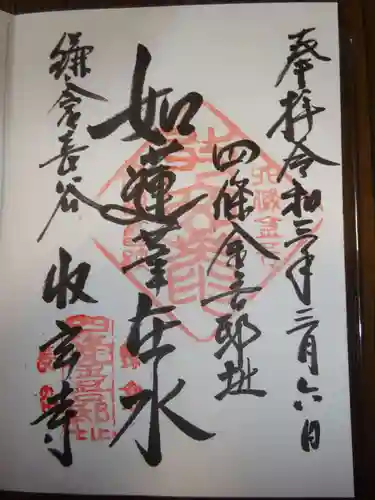 奉拝令和三年三月六日
四條金吾邸址
如蓮華在水
鎌倉長谷
收玄寺